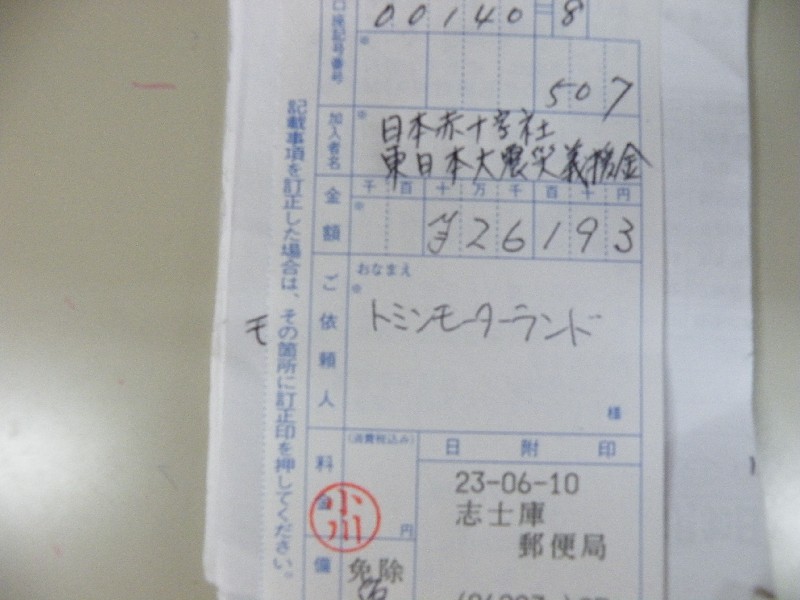 口座記号番号
00140=8
507
加入者名
日本赤十字社
東日本大震災義援金
金額
千 百 十 万 千 百 十 円
¥26193
ご依頼人
おなまえ
トミンモーターランド
様
料金
(消費税込み)
円
小川
日附印
23-06-10
志士庫
郵便局
備
免除
記載事項を訂正した場合は、その箇所に訂正印を押してください。
モ